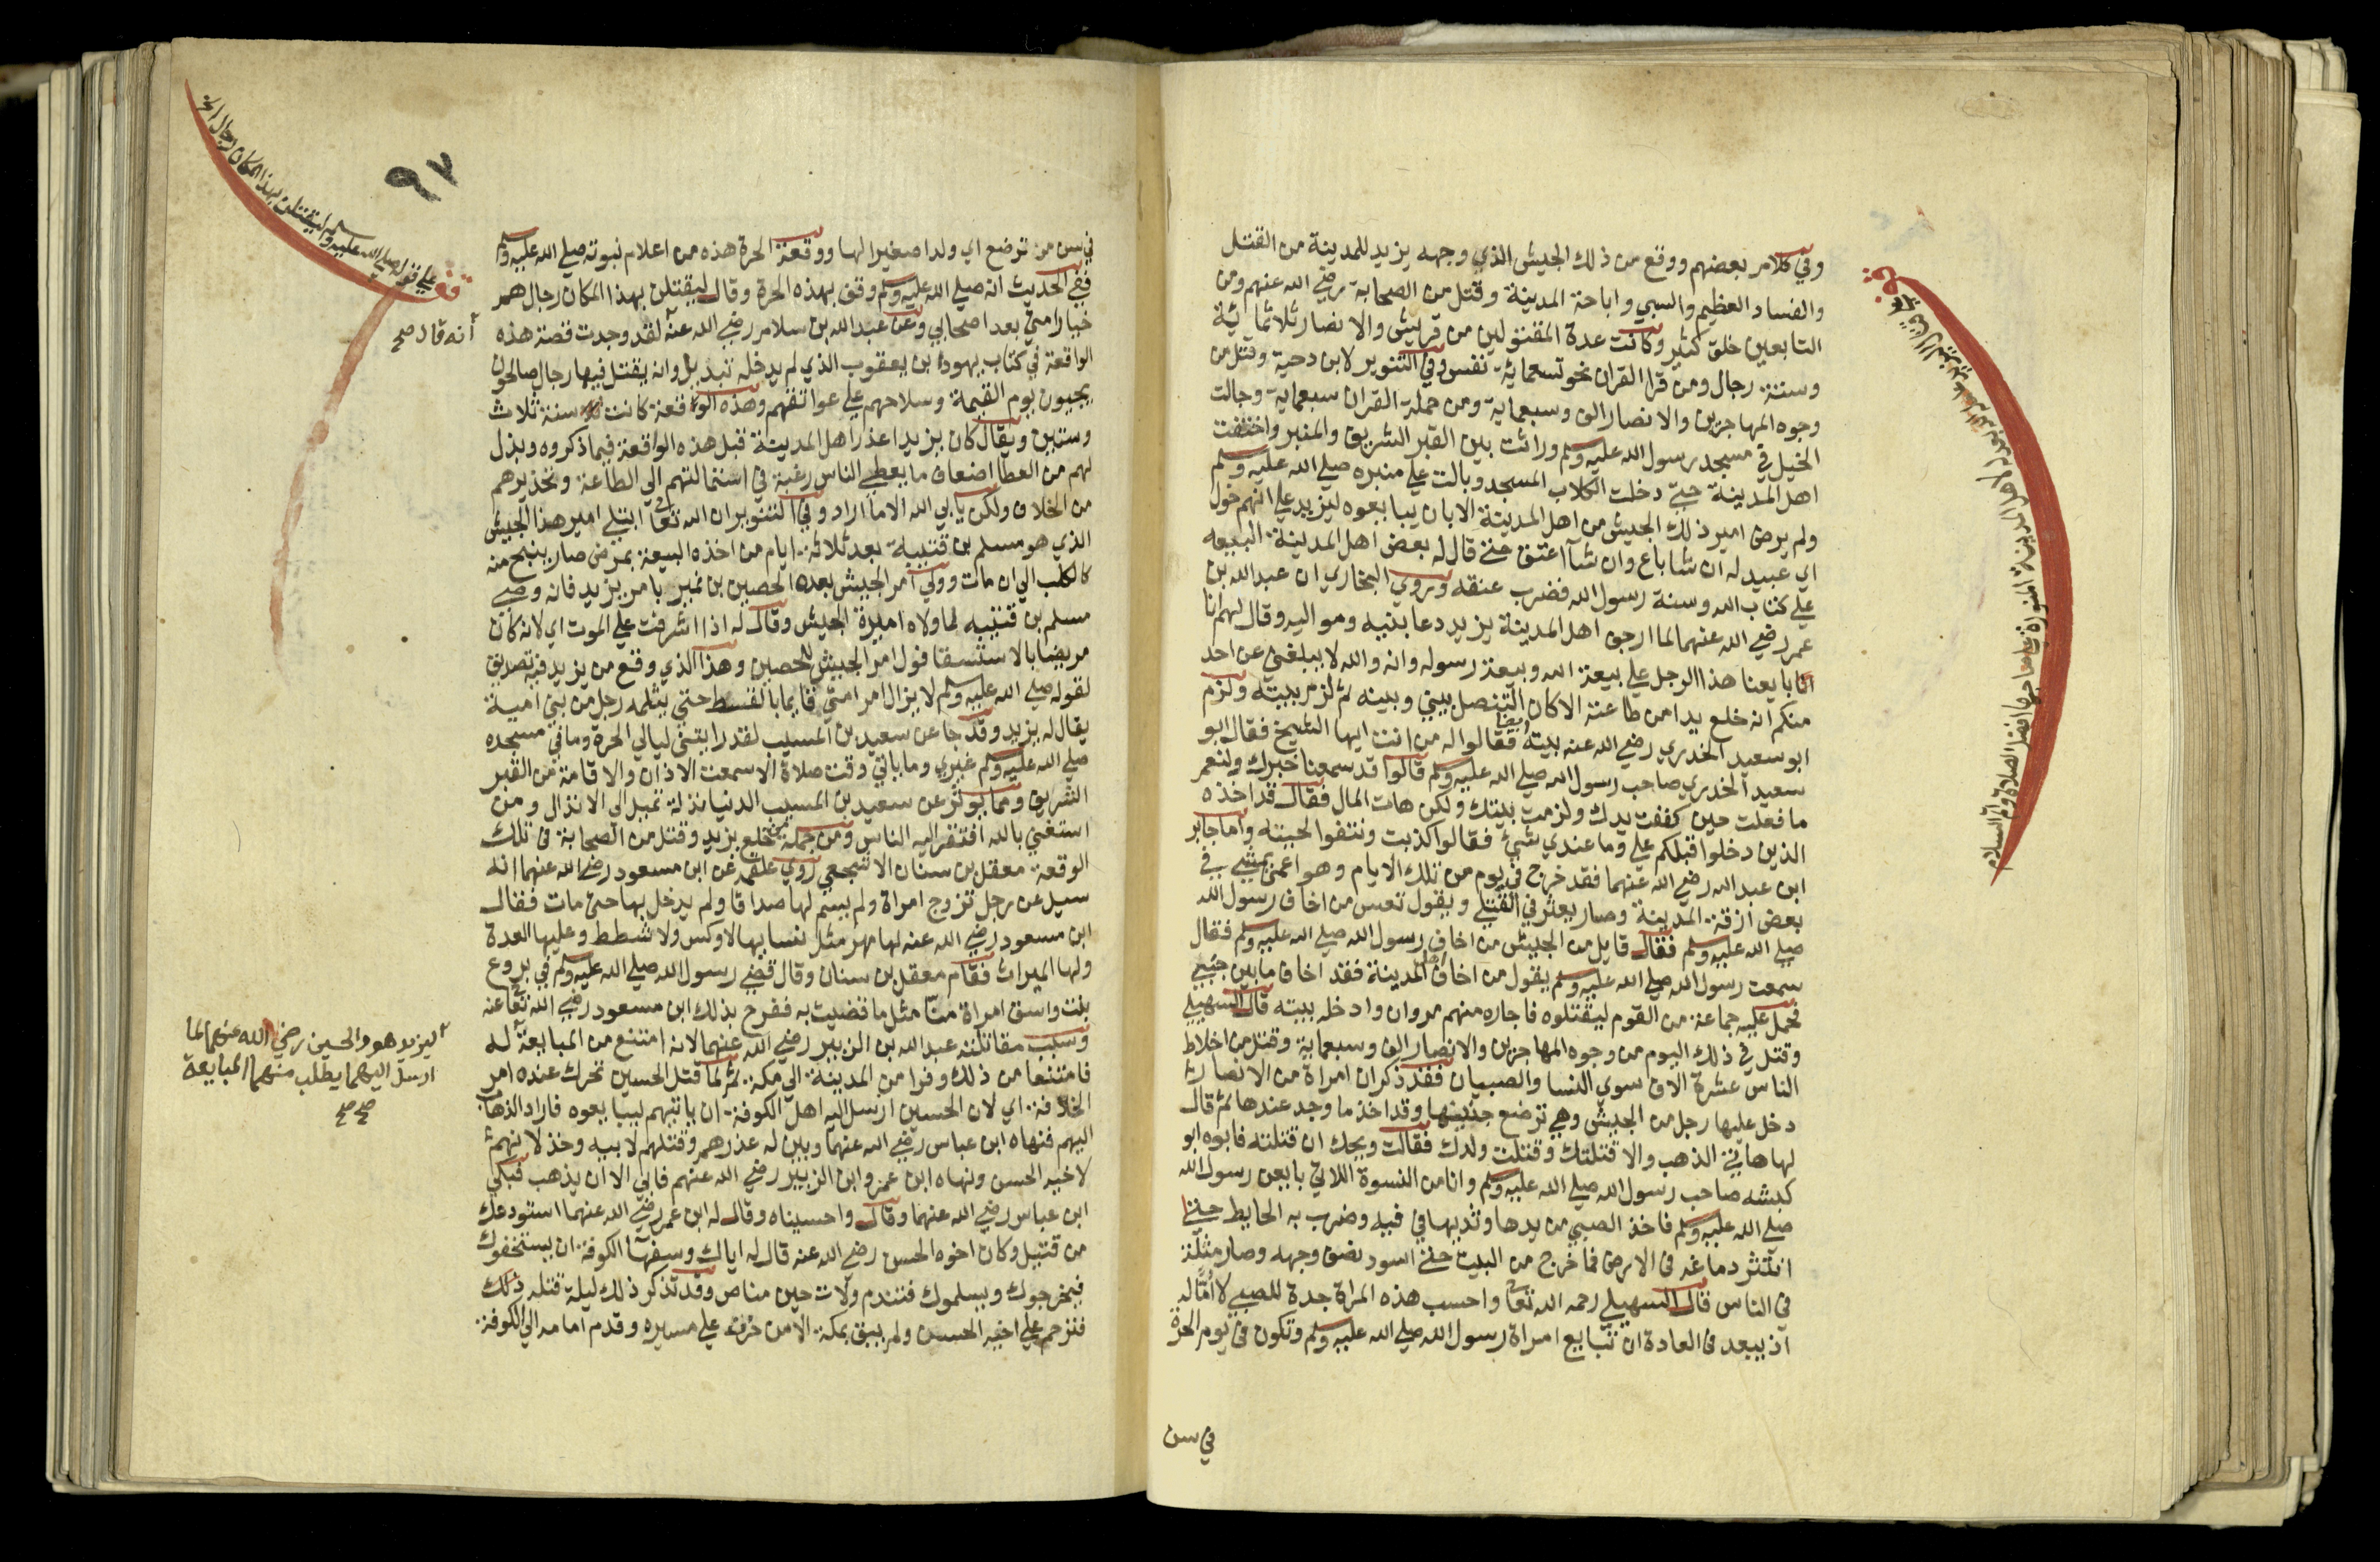 وفي كلام بعضهم ووقع من ذلك الجيش الذي وجهه يزيد للمدينة من القتل
والفساد العظيم والسبي واباحة المدينة وقتل من الصحابة رضي الله عنهم ومن
التابعين خلق كثير وكانت عدة المقتولين من قريش والانصار ثلاثماية
وستة رجال ومن قرا القران نحو تسعماية نفس وفي التنوير لابن دحية وقتل من
وجوه المهاجرين والانصار الف وسبعماية ومن حملة القران سبعماية وجالت
الخيل في مسجد رسول الله عليه وسلم وراثت بين القبر الشريف والمنبر واختفت
اهل المدينة حتي دخلت الكلاب المسجد وبالت علي منبره صلي الله عليه وسلم
ولم يرض امير ذلك الجيش من اهل المدينة الا بان يبايعوه ليزيد علي انهم خول
اي عبيد له ان شا باع وان شآ اعتق حتي قال له بعض اهل المدينة البيعه
علي كتاب الله وسنة رسول الله فضرب عنقه وروي البخاري ان عبد الله بن
عمر رضي الله عنهما لما ارجف اهل المدينة يزيد دعا بنيه ومواليه وقال لهم انا
انا بايعنا هذا الرجل علي بيعة الله وبيعة رسوله وانه والله لا يبلغني عن احد
منكم انه خلع يدا من طاعته الا كان التنصل بيني وبينه ثم لزم بيته ولزم
ابو سعيد الخدري رضي الله عنه بيته ايضا فقالوا له من انت ايها الشيخ فقال ابو
سعيد الخدري صاحب رسول الله صلي الله عليه وسلم قالوا قد سمعنا خبرك ولنعم
ما فعلت حين كففت يدك ولزمت بيتك ولكن هات المال فقال قد اخذه
الذين دخلوا قبلكم علي وما عندي شيئ فقالوا كذبت ونتفوا لحيته واما جابر
ابن عبد الله رضي الله عنهما فقد خرج في يوم من تلك الايام وهو اعمي يمشي في
بعض ازقة المدينة وصار يعثر في القتلي ويقول تعس من اخاف رسول الله
صلي الله عليه وسلم فقال قايل من الجيش من اخاف رسول الله صلي الله عليه وسلم فقال
سمعت رسول الله صلي الله عليه وسلم يقول من اخاف اهل المدينة فقد اخاف ما بين جنبي
فحمل عليه جماعة من القوم ليقتلوه فاجاره منهم مروان وادخله بيته قال السهيلي
وقتل في ذلك اليوم من وجوه المهاجرين والانصار الف وسبعماية وقتل من اخلاط
الناس عشرة الاف سوي النسا والصبيان فقد ذكر ان امراة من الانصار
دخل عليها رجل من الجيش وهي ترضع جنينها وقد اخذ ما وجد عندها ثم قال
لها هاتي الذهب والا قتلتك وقتلت ولدك فقالت ويحك ان قتلته فابوه ابو
كبشه صاحب رسول الله صلي الله عليه وسلم وانا من النسوة اللاتي بايعن رسول الله
صلي الله عليه وسلم فاخذ الصبي من يدها وثديها في فيه وضرب به الحايط حتي
انتثر دماغه في الارض فما خرج من البيت حتي اسود نصف وجهه وصار مثلة
في الناس قال السهيلي رحمه الله تعا واحسب هذه المراة جدة للصبي لا امّا له
اذ يبعد في العادة ان تبايع امراة رسول الله صلي الله عليه وسلم وتكون في يوم الحرة
في سن
٩٧
في سن من ترضع اي ولدا صغيرا لها ووقعة الحرة هذه من اعلام نبوته صلي الله عليه وسلم
ففي الحديث انه صلي الله عليه وسلم وقف بهذه الحرة وقال ليقتلن بهذا المكان رجال هم
خيار امتي بعد اصحابي وعن عبد الله بن سلام رضي الله عنه لقد وجدت قصة هذه
الواقعة في كتاب يهودا بن يعقوب الذي لم يدخله تبديل وانه يقتل فيها رجال صالحون
يجيون يوم القيمة وسلاحهم علي عواتقهم وهذه الواقعة كانت سنة ثلاث
وستين ويقال كان يزيد اعذر اهل المدينة قبل هذه الواقعة فيما ذكروه وبذل
لهم من العطا اضعاف ما يعطي الناس رغبة في استمالتهم الي الطاعة وتحذيرهم
من الخلاف ولكن يابي الله الا ما اراد وفي التنوير ان الله تعا ابتلي امير هذا الجيش
الذي هو مسلم بن قتيبة بعد ثلاثة ايام من اخذه البيعة بمرض صار ينبح منه
كالكلب الي ان مات وولي امر الجيش بعده الحصين بن نمير بامر يزيد فانه وصي
مسلم بن قتيبه لما ولاه اميرة الجيش وقال له اذا اشرفت علي الموت اي لانه كان
مريضا بالاستسقا فول امر الجيش للحصين وهذا الذي وقع من يزيد فيه تصديق
لقوله صلي الله عليه وسلم لا يزال امر امتي قايما بالقسط حتي يثلمه رجل من بني امية
يقال له يزيد وقد جا عن سعيد بن المسيب لقد رايتني ليالي الحرة وما في مسجده
صلي الله عليه وسلم غيري وما ياتي وقت صلاة الا سمعت الاذان والاقامة من القبر
الشريف ومما يوثر عن سعيد بن المسيب الدنيا نذلة تميل الي الانذال ومن
استغني بالله افتقر اليه الناس ومن جملة من خلع يزيد وقتل من الصحابة في تلك
الوقعة معقل بن سنان الاشجعي روي علقمة عن ابن مسعود رضي الله عنهما انه
سيل عن رجل تزوج امراة ولم يسم لها صداقا ولم يدخل بها حتي مات فقال
ابن مسعود رضي الله عنه لها مهر مثل نسايها لا وكس ولا شطط وعليها العدة
ولها الميراث فقام معقل بن سنان وقال قضي رسول الله صلي الله عليه وسلم في بروع
بنت واسق امراة منّا مثل ما قضيت به ففرح بذلك ابن مسعود رضي الله تعا عنه
وسبب مقاتلته عبد الله بن الزبير رضي الله عنهما لانه امتنع من المبايعة له
فامتنعا من ذلك وفرا من المدينة الي مكة ثم لما قتل الحسين تحرك عنده امر
الخلافة اي لان الحسين ارسل اليه اهل الكوفة ان ياتيهم ليبايعوه فاراد الذهاب
اليهم فنهاه ابن عباس رضي الله عنهما وبين له غدرهم وقتلهم لابيه وخذلانهم
لاخيه الحسن ونهاه ابن عمر وابن الزبير رضي الله عنهم فابي الا ان يذهب فبكي
ابن عباس رضي الله عنهما وقال واحسيناه وقال له ابن عمر رضي الله عنهما استودعك
من قتيل وكان اخوه الحسن رضي الله عنه قال له اياك وسفهآ الكوفة ان يستخفوك
فيخرجوك ويسلموك فتندم ولات حين مناص وقد تذكر ذلك ليلة قتله ذلك
فترحم علي اخيه الحسن ولم يبق بمكة الا من حزن علي مسيره وقدم امامه الي الكوفة
قف علي قوله صلي الله عليه وسلم ليقتلن بهذا المكان رجال الخ
أنه قال صح
ليزيد هو والحسين رضي الله عنهما لما
ارسل اليهما يطلب منهما المبايعة
صح صح